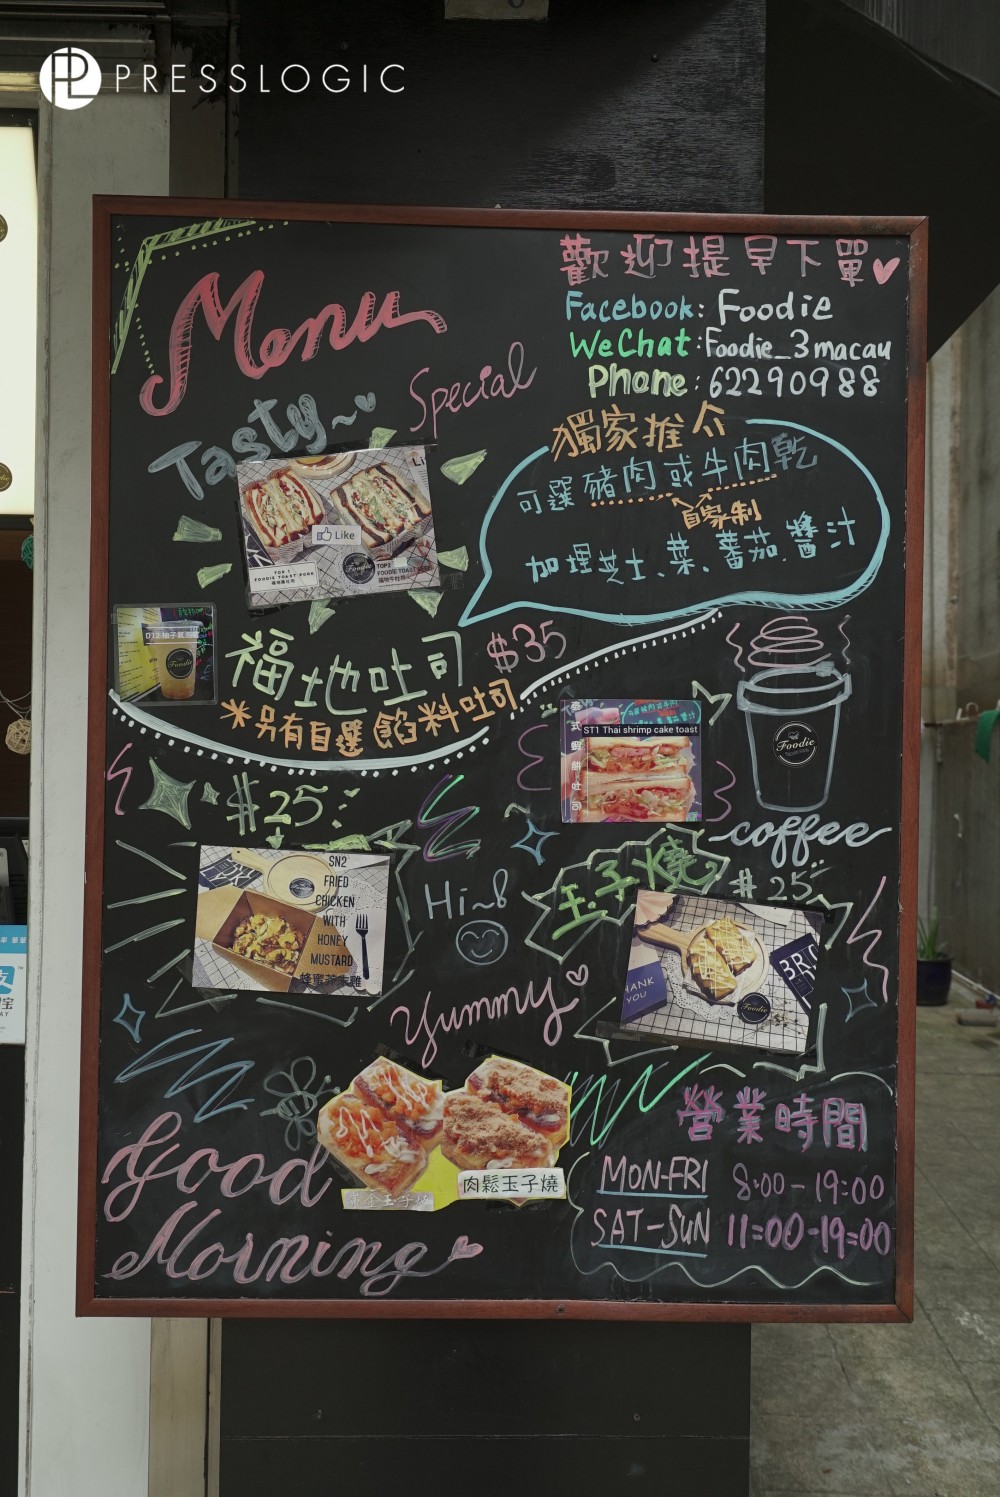 PRESSLOGIC
歡迎提早下單
Facebook: Foodie
WeChat: Foodie_3macau
Phone: 62290988
Menu
Tasty~
Special
獨家推介
可選豬肉或牛肉乾
自家制
加埋芝士、菜、蕃茄、醬汁
Like
TOP 1
FOODIE TOAST PORK
TOP2
FOODIE TOAST BEEF
Foodie
Foodie
福地吐司 $35
*另有自選餡料吐司
ST1 Thai shrimp cake toast
泰式蝦餅吐司
Foodie
coffee
$25
SN2
FRIED
CHICKEN
WITH
HONEY
MUSTARD
蜂蜜芥末雞
Hi~
玉子燒 $25
THANK
YOU
BRO
Foodie
Yummy
肉鬆玉子燒
Good
Morning
營業時間
MON-FRI 8:00-19:00
SAT-SUN 11:00-19:00